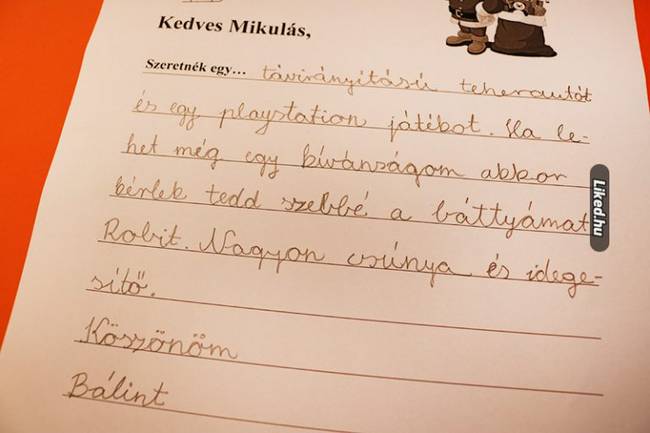 Kedves Mikulás,
Szeretnék egy... távirányítású teherautót
és egy playstation játékot. Ha le-
het még egy kívánságom akkor
kérlek tedd szebbé a báttyámat
Robit. Nagyon csúnya és idege-
sítő.
Köszönöm
Bálint
Liked.hu